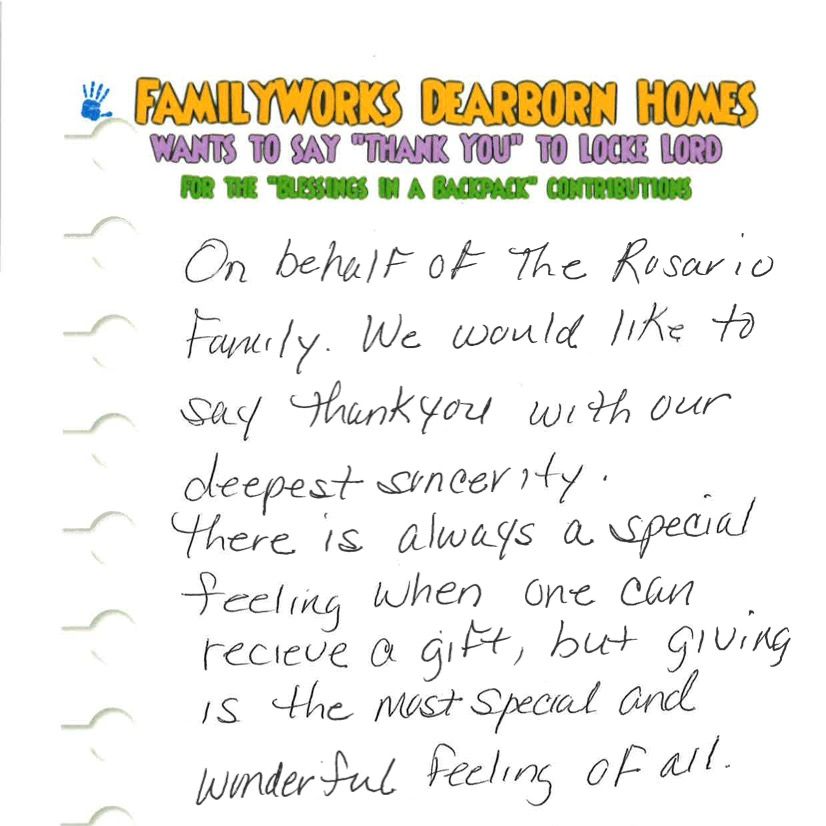 FAMILYWORKS DEARBORN HOMES
WANTS TO SAY "THANK YOU" TO LOCKE LORD
FOR THE "BLESSINGS IN A BACKPACK" CONTRIBUTIONS
On behalf of the Rosario
Family. We would like to
say thankyou with our
deepest sincerity.
there is always a special
feeling when one can
recieve a gift, but giving
is the most special and
wonderful feeling of all.